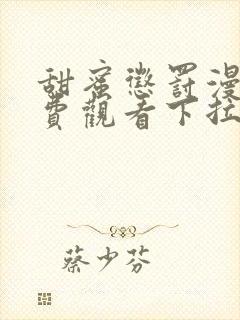 甜蜜懲罰漫
費觀看下拉
蔡少芬